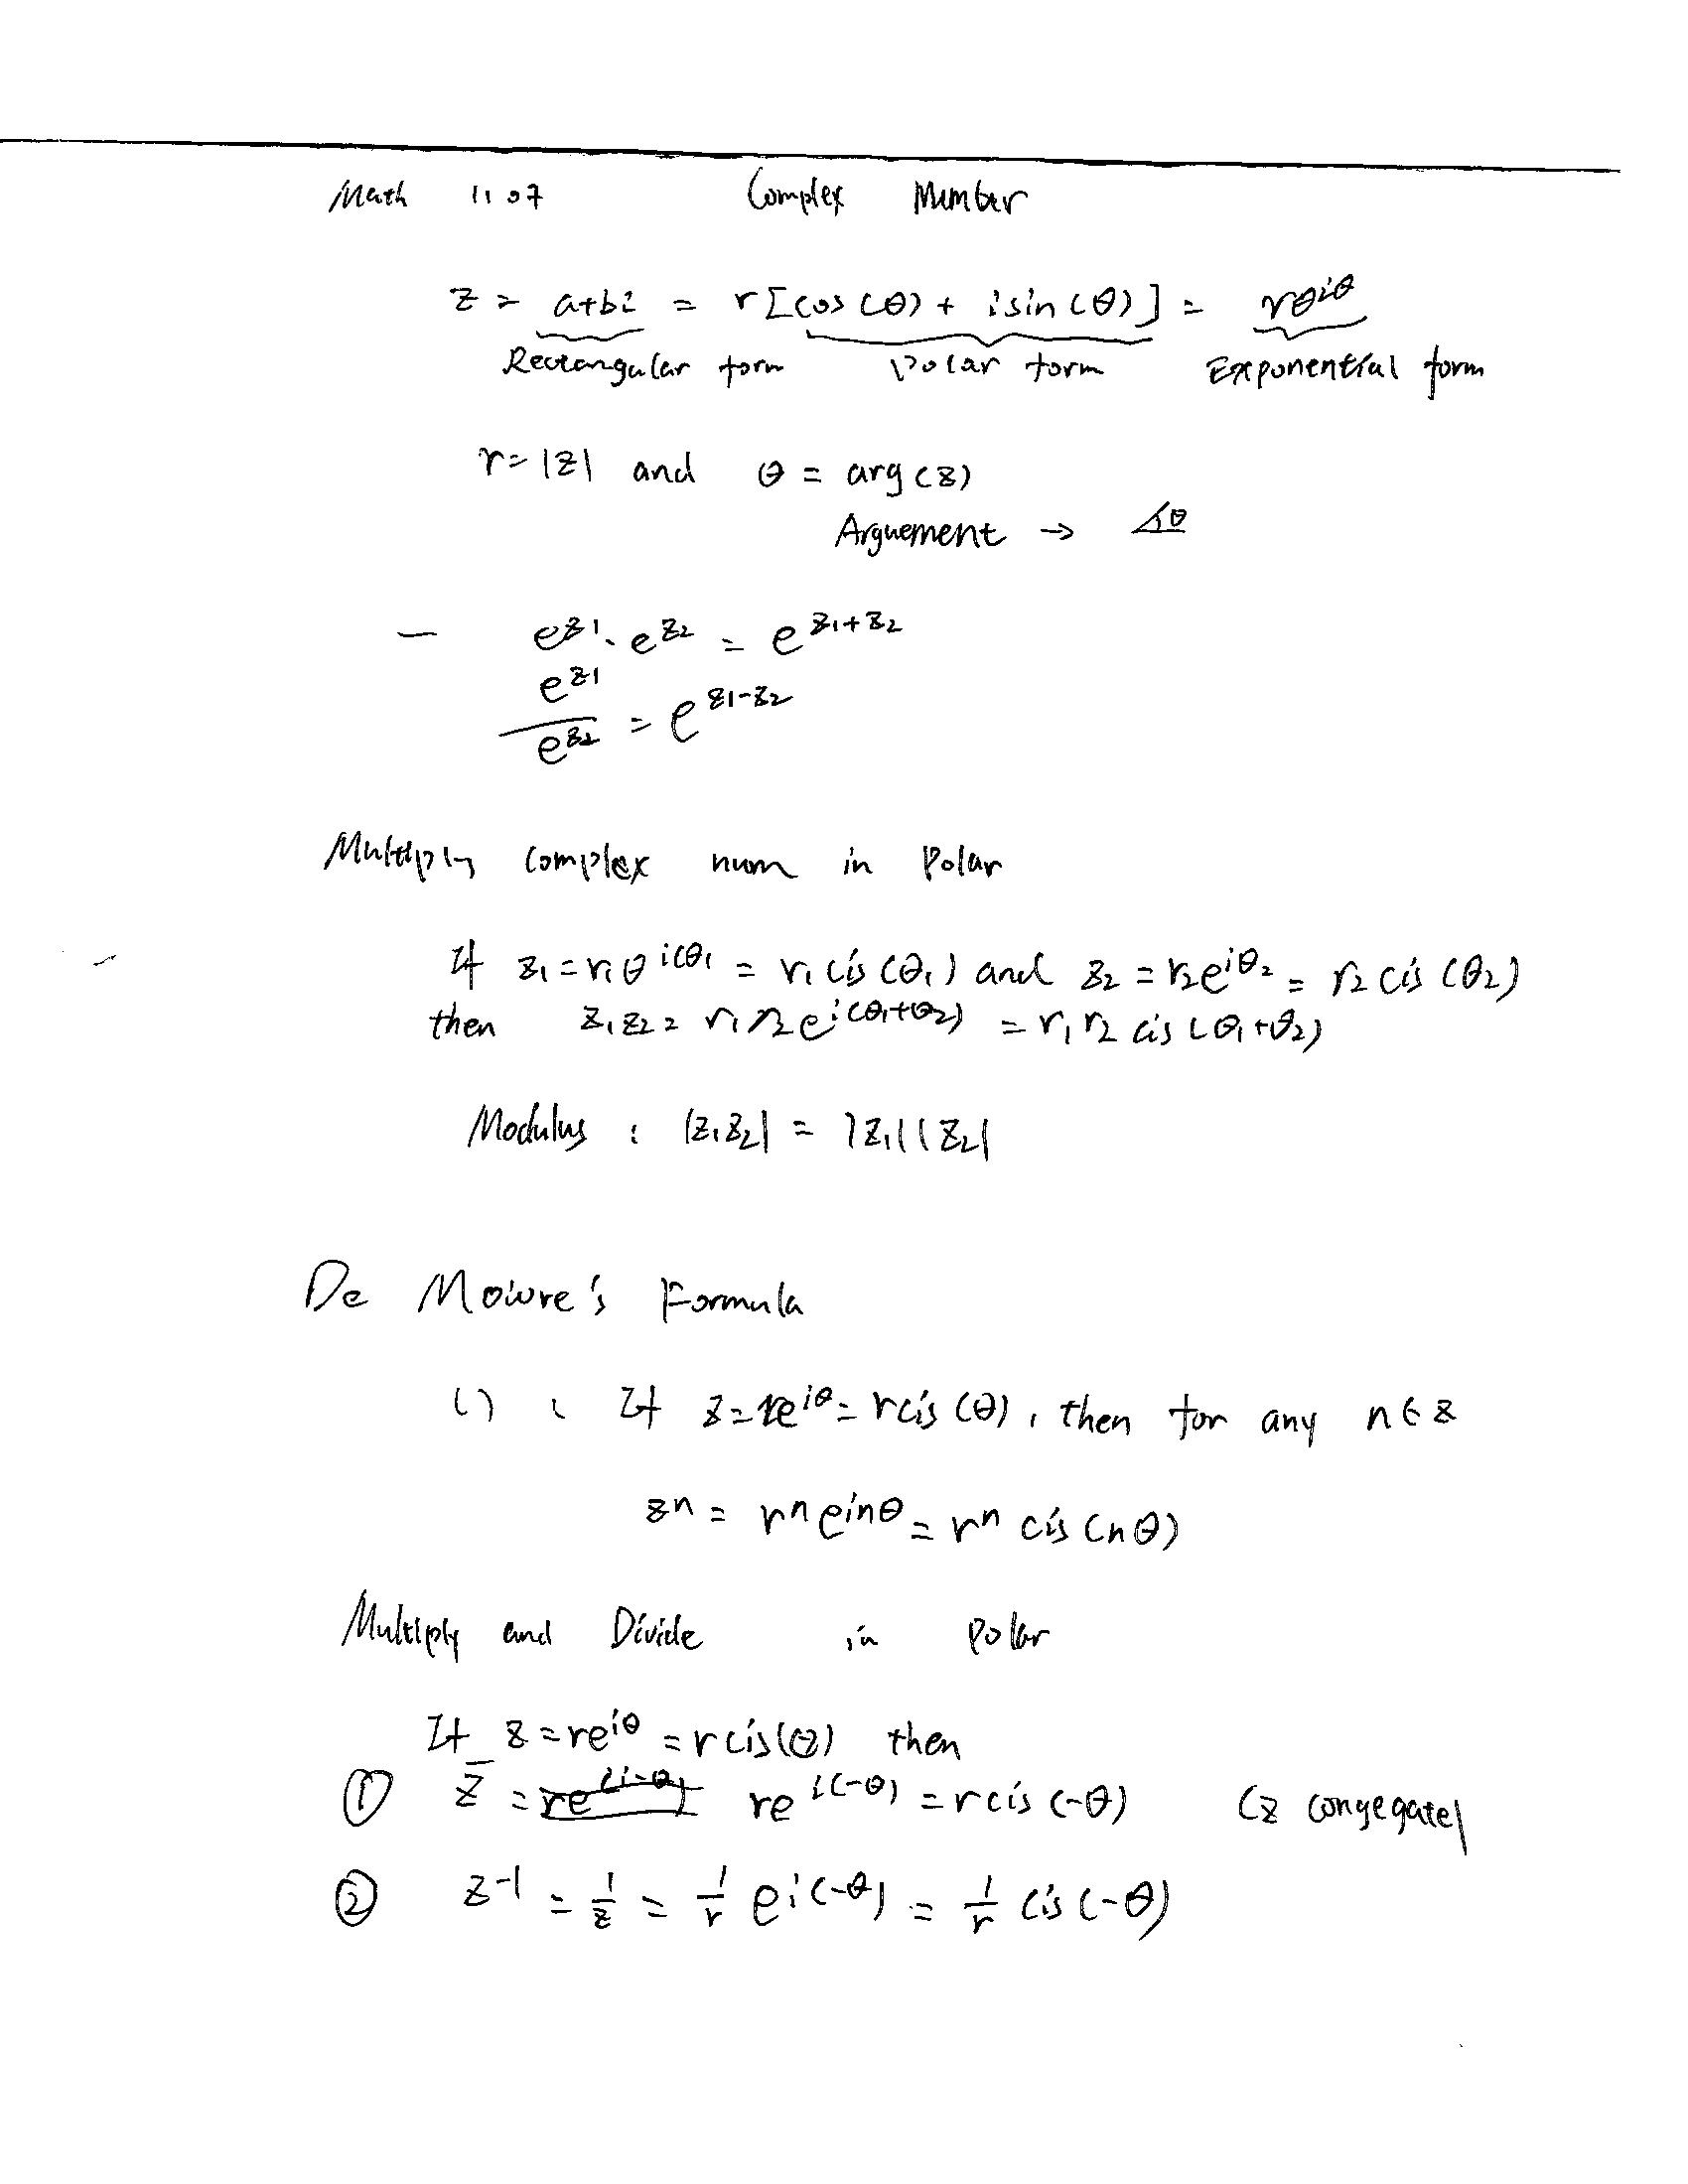 Math 1107 Complex Number
z = a+bi = r[cos(θ) + isin(θ)] = rθ^iθ
Rectangular form Polar form Exponential form
r = |z| and θ = arg(z)
Arguement → ∡θ
— e^z1 · e^z2 = e^z1+z2
e^z1 / e^z2 = e^z1-z2
Multiply complex num in Polar
If z1 = r1θ^i(θ1 = r1 cis(θ1) and z2 = r2e^iθ2 = r2 cis(θ2)
then z1z2 = r1r2e^i(θ1+θ2) = r1r2 cis(θ1+θ2)
Modulus : |z1z2| = |z1||z2|
De Moivre's Formula
() : If z = re^iθ = rcis(θ), then for any n∈z
z^n = r^n e^inθ = r^n cis(nθ)
Multiply and Divide in polar
If z = re^iθ = rcis(θ) then
① z̄ = re^(i-θ) re^i(-θ) = rcis(-θ) (z congegate)
② z^-1 = 1/z = 1/r e^i(-θ) = 1/r cis(-θ)